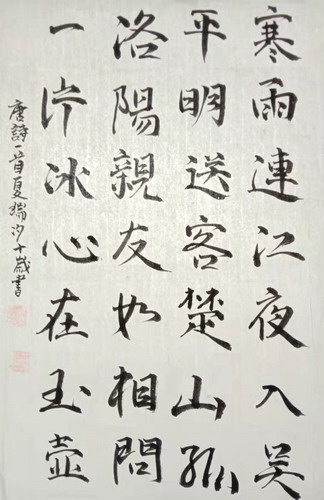 寒雨連江夜入吴
平明送客楚山孤
洛陽親友如相問
一片冰心在玉壺
唐詩一首夏瑞汐十歲書